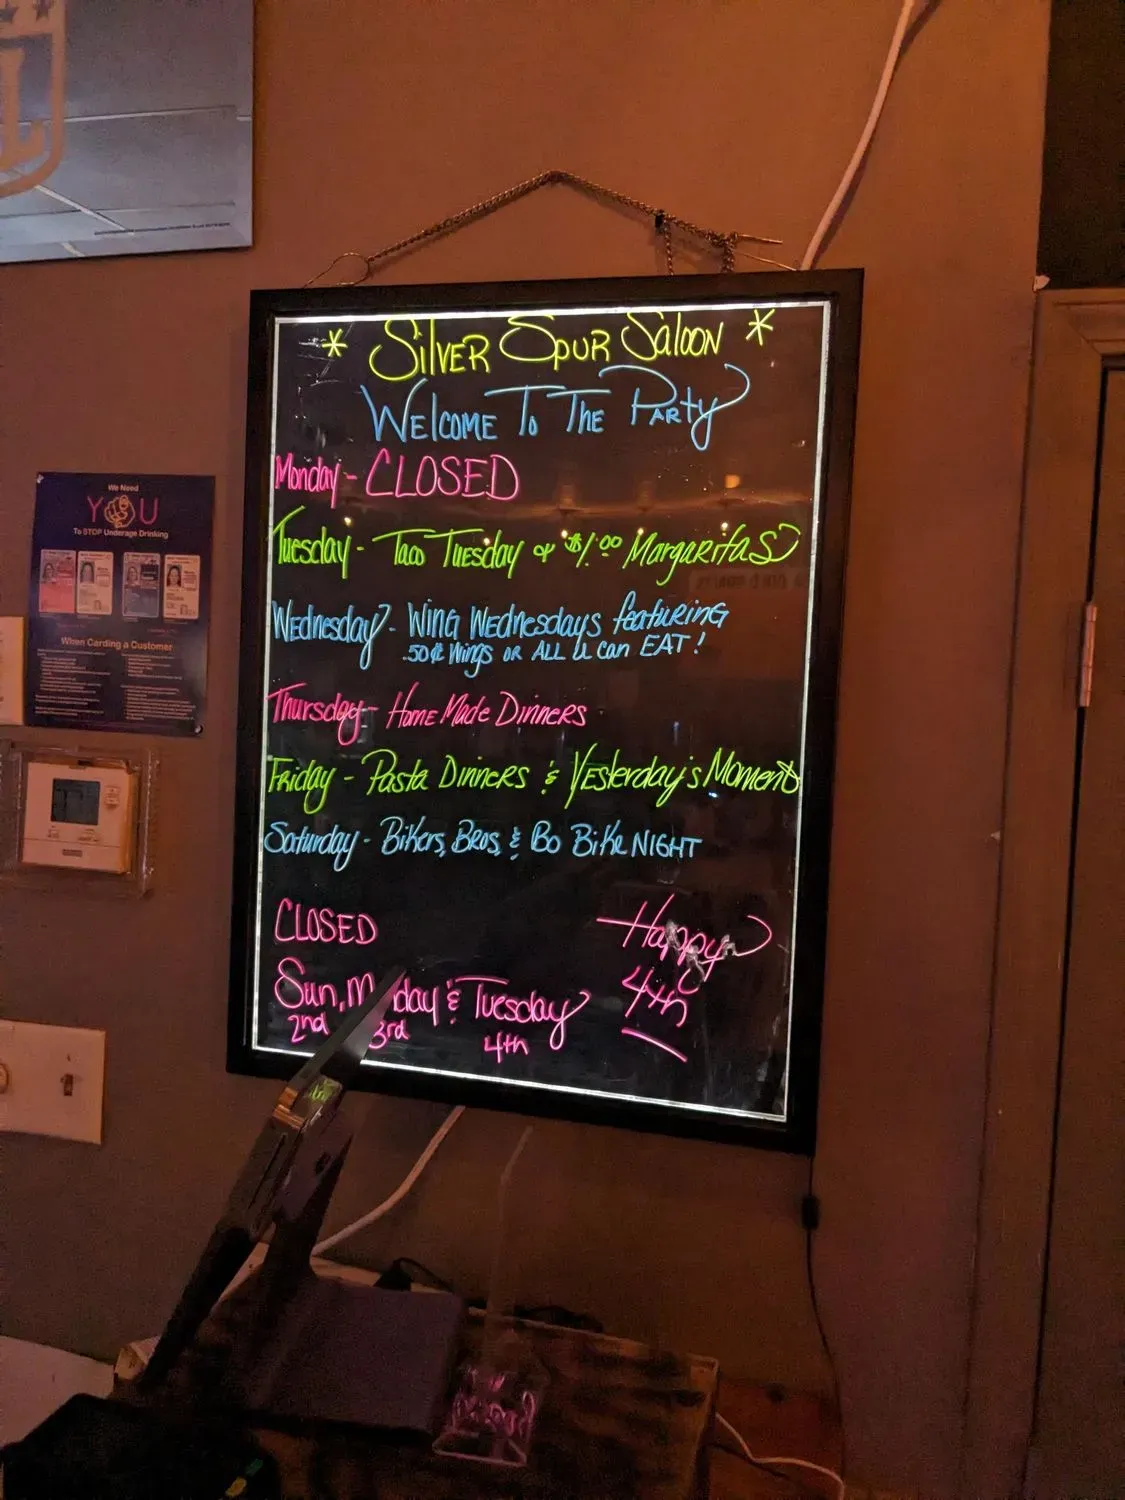 We Need
YOU
To STOP Underage Drinking
When Carding a Customer
* SILVER SPUR SALOON *
WELCOME TO THE PARTY
Monday - CLOSED
Tuesday - Taco Tuesday & $1.00 Margaritas
Wednesday - Wing Wednesdays featuring
.50¢ Wings or ALL U can EAT!
Thursday - Home Made Dinners
Friday - Pasta Dinners & Yesterday's Moment
Saturday - Bikers, Bros, & Bo Bike NIGHT
CLOSED
Happy
4th
Sun, Monday & Tuesday
2nd 3rd 4th